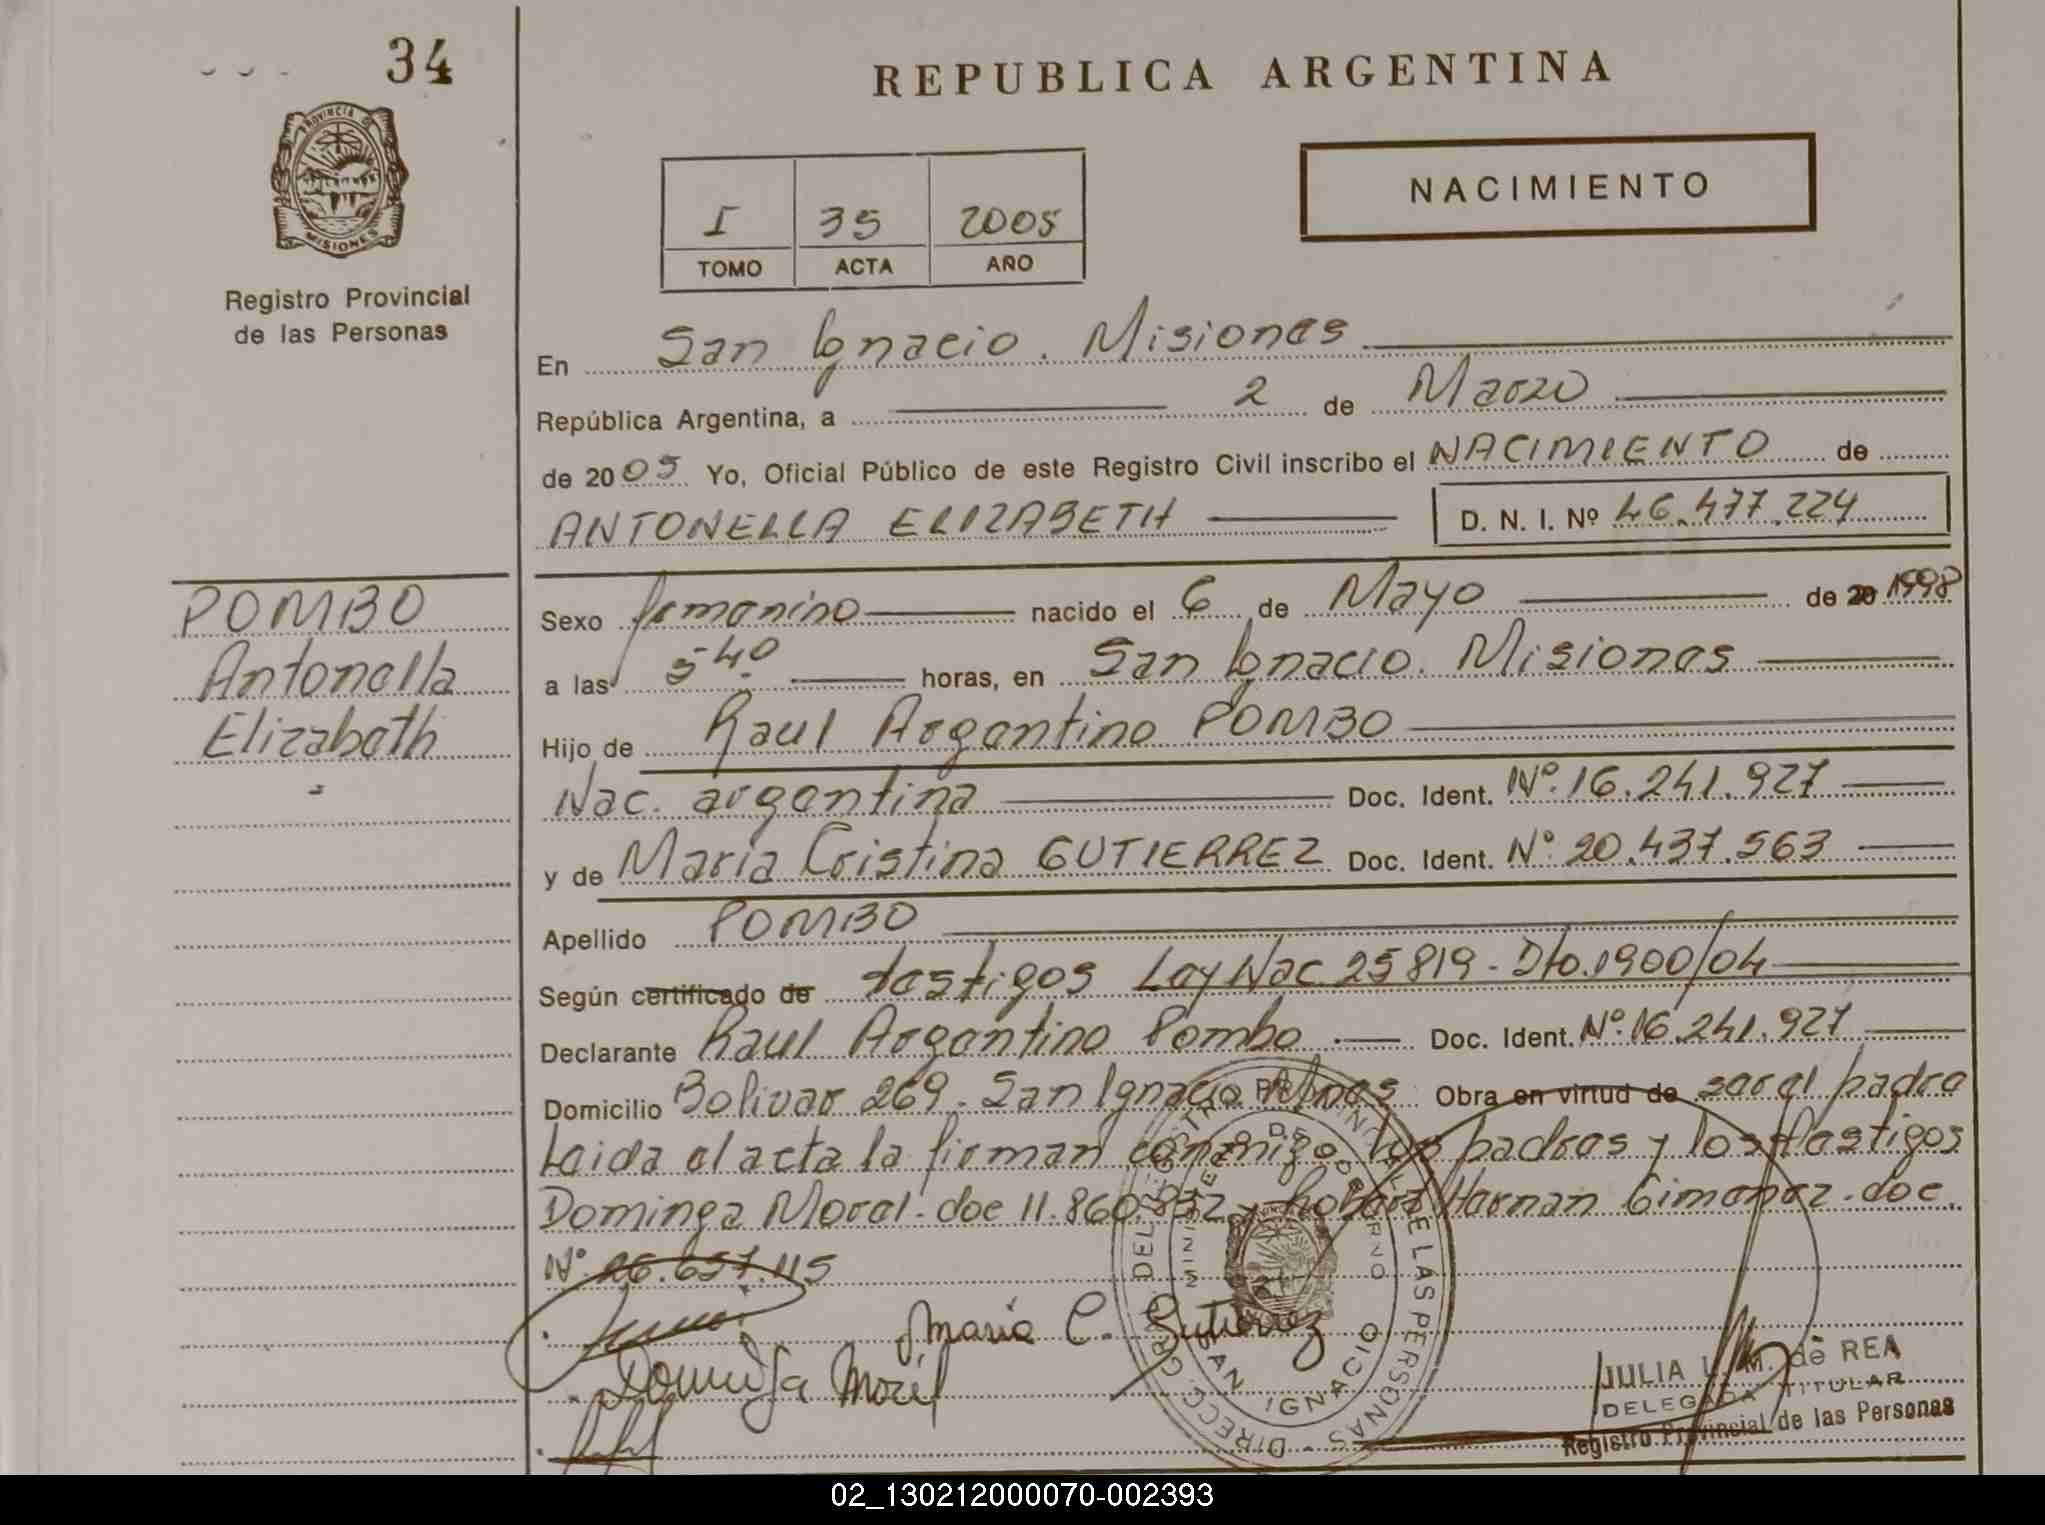 34
PROVINCIA DE
MISIONES
Registro Provincial
de las Personas
REPUBLICA ARGENTINA
NACIMIENTO
I 35 2005
TOMO ACTA AÑO
En San Ignacio. Misiones
República Argentina, a 2 de Marzo
de 2005 Yo, Oficial Público de este Registro Civil inscribo el NACIMIENTO de
ANTONELLA ELIZABETH D. N. I. Nº 46.477.224
POMBO
Antonella
Elizabeth
Sexo femenino nacido el 6 de Mayo de 20 1998
a las 5 40 horas, en San Ignacio. Misiones
Hijo de Raul Argentino POMBO
Nac. argentina Doc. Ident. Nº 16.241.927
y de María Cristina GUTIERREZ Doc. Ident. Nº 20.437.563
Apellido POMBO
Según certificado de testigos Ley Nac. 25819 - Dto. 1900/04
Declarante Raul Argentino Pombo Doc. Ident. Nº 16.241.927
Domicilio Bolivar 269. San Ignacio Mnes Obra en virtud de ser el padre
Leida el acta la firman conmigo los padres y los testigos
Dominga Morel. doc 11.860.832 y Hernan Gimenez. doc.
Nº 26.657.115
María C. Gutierrez
Dominga Morel
DIRECC. GRAL. DEL REGISTRO PROVINCIAL DE LAS PERSONAS
SAN IGNACIO
JULIA L. M. de REA
DELEGADA TITULAR
Registro Provincial de las Personas
02_130212000070-002393